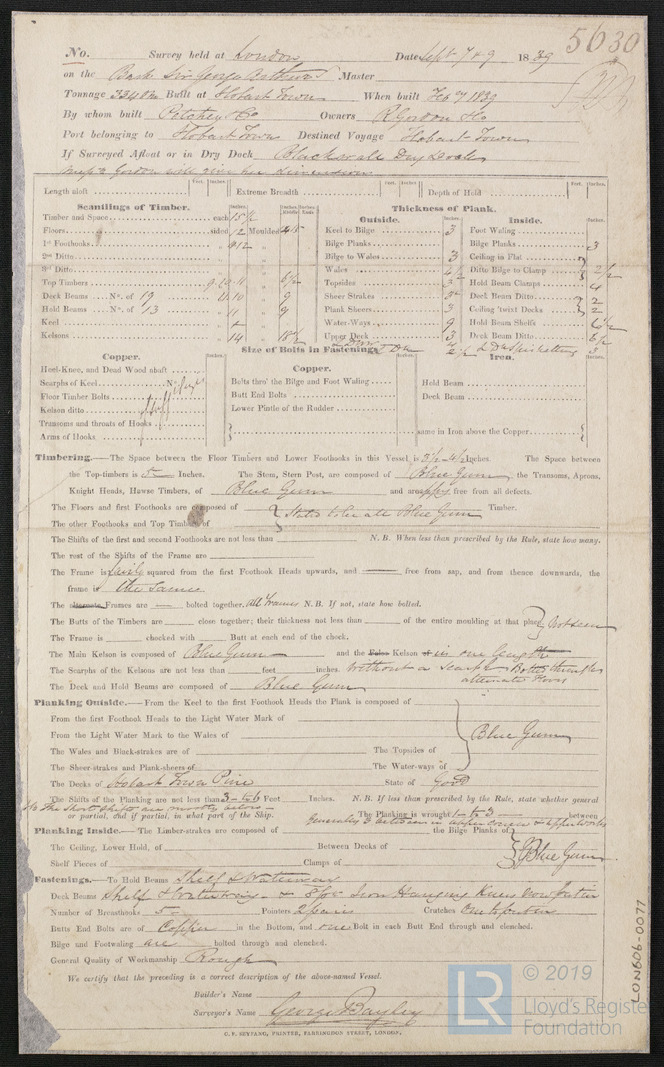 5630
No. Survey held at London Date Sept 7 & 9 1839
on the Bark Sir George Arthur Master
Tonnage 334 Built at Hobart Town When built Feby 1839
By whom built Petchey & Co Owners R Gordon & Co
Port belonging to Hobart Town Destined Voyage Hobart Town
If Surveyed Afloat or in Dry Dock Blackwall Dry Dock
Gordon will give her dimensions
Feet. Inches. Feet. Inches. Feet. Inches.
Length aloft Extreme Breadth Depth of Hold
Scantlings of Timber.
Timber and Space each 15 1/2
Floors sided 12 Moulded
1st Foothooks 12
2nd Ditto
3rd Ditto
Top Timbers
Deck Beams No. of 19 10 9
Hold Beams No. of 13 11 9
Keel
Kelsons 14 18 1/2
Thickness of Plank.
Outside.
Keel to Bilge 3
Bilge Planks
Bilge to Wales 3
Wales 4 1/2
Topsides 3
Sheer Strakes
Plank Sheers 3
Water-Ways 9
Upper Deck 3
Inside.
Foot Waling
Bilge Planks 3
Ceiling in Flat
Ditto Bilge to Clamp 2 1/2
Hold Beam Clamps 4
Deck Beam Ditto 2
Ceiling 'twixt Decks 2
Hold Beam Shelfs 6 1/2
Deck Beam Ditto 6 1/2
Spirketting 3
Size of Bolts in Fastenings.
Copper.
Heel-Knee, and Dead Wood abaft
Scarphs of Keel
Floor Timber Bolts
Kelson ditto
Transoms and throats of Hooks
Arms of Hooks
Copper.
Bolts thro' the Bilge and Foot Waling
Butt End Bolts
Lower Pintle of the Rudder
Iron.
Hold Beam
Deck Beam
same in Iron above the Copper
Timbering.—The Space between the Floor Timbers and Lower Foothooks in this Vessel is 3 1/2 - 4 1/2 Inches. The Space between
the Top-timbers is 5 Inches. The Stem, Stern Post, are composed of Blue Gum, the Transoms, Aprons,
Knight Heads, Hawse Timbers, of Blue Gum and are appy free from all defects.
The Floors and first Foothooks are composed of
The other Foothooks and Top Timbers of } Stated to be all Blue Gum Timber.
The Shifts of the first and second Foothooks are not less than N. B. When less than prescribed by the Rule, state how many.
The rest of the Shifts of the Frame are
The Frame is fairly squared from the first Foothook Heads upwards, and — free from sap, and from thence downwards, the
frame is the same
The alternate Frames are — bolted together. All Frames N. B. If not, state how bolted.
The Butts of the Timbers are close together; their thickness not less than of the entire moulding at that place } Not seen
The Frame is chocked with Butt at each end of the chock.
The Main Kelson is composed of Blue Gum and the False Kelson of is in one length
The Scarphs of the Kelsons are not less than feet inches. without a scarph Bolted through
alternate floors
The Deck and Hold Beams are composed of Blue Gum
Planking Outside.—From the Keel to the first Foothook Heads the Plank is composed of
From the first Foothook Heads to the Light Water Mark of
From the Light Water Mark to the Wales of
Blue Gum
The Wales and Black-strakes are of The Topsides of
The Sheer-strakes and Plank-sheers of The Water-ways of
The Decks of Hobart Town Pine State of Good
The Shifts of the Planking are not less than 3 to 6 Feet Inches. N. B. If less than prescribed by the Rule, state whether general
NB The short shifts are mostly below
or partial, and if partial, in what part of the Ship. The Planking is wrought 1 to 3 between
generally 3 between in upper course & upper works
Planking Inside.—The Limber-strakes are composed of the Bilge Planks of
The Ceiling, Lower Hold, of Between Decks of } Blue Gum
Shelf Pieces of Clamps of
Fastenings.—To Hold Beams Shelf & Waterway
Deck Beams Shelf & Waterway & Iron Hanging Knees
Number of Breasthooks 5 Pointers 2 pairs Crutches
Butts End Bolts are of Copper in the Bottom, and one Bolt in each Butt End through and clenched.
Bilge and Footwaling are bolted through and clenched.
General Quality of Workmanship Rough
We certify that the preceding is a correct description of the above-named Vessel.
Builder's Name
Surveyor's Name George Bayley
C. F. SEYFANG, PRINTER, FARRINGDON STREET, LONDON.
LON606-0077
LR © 2019
Lloyd's Register
Foundation